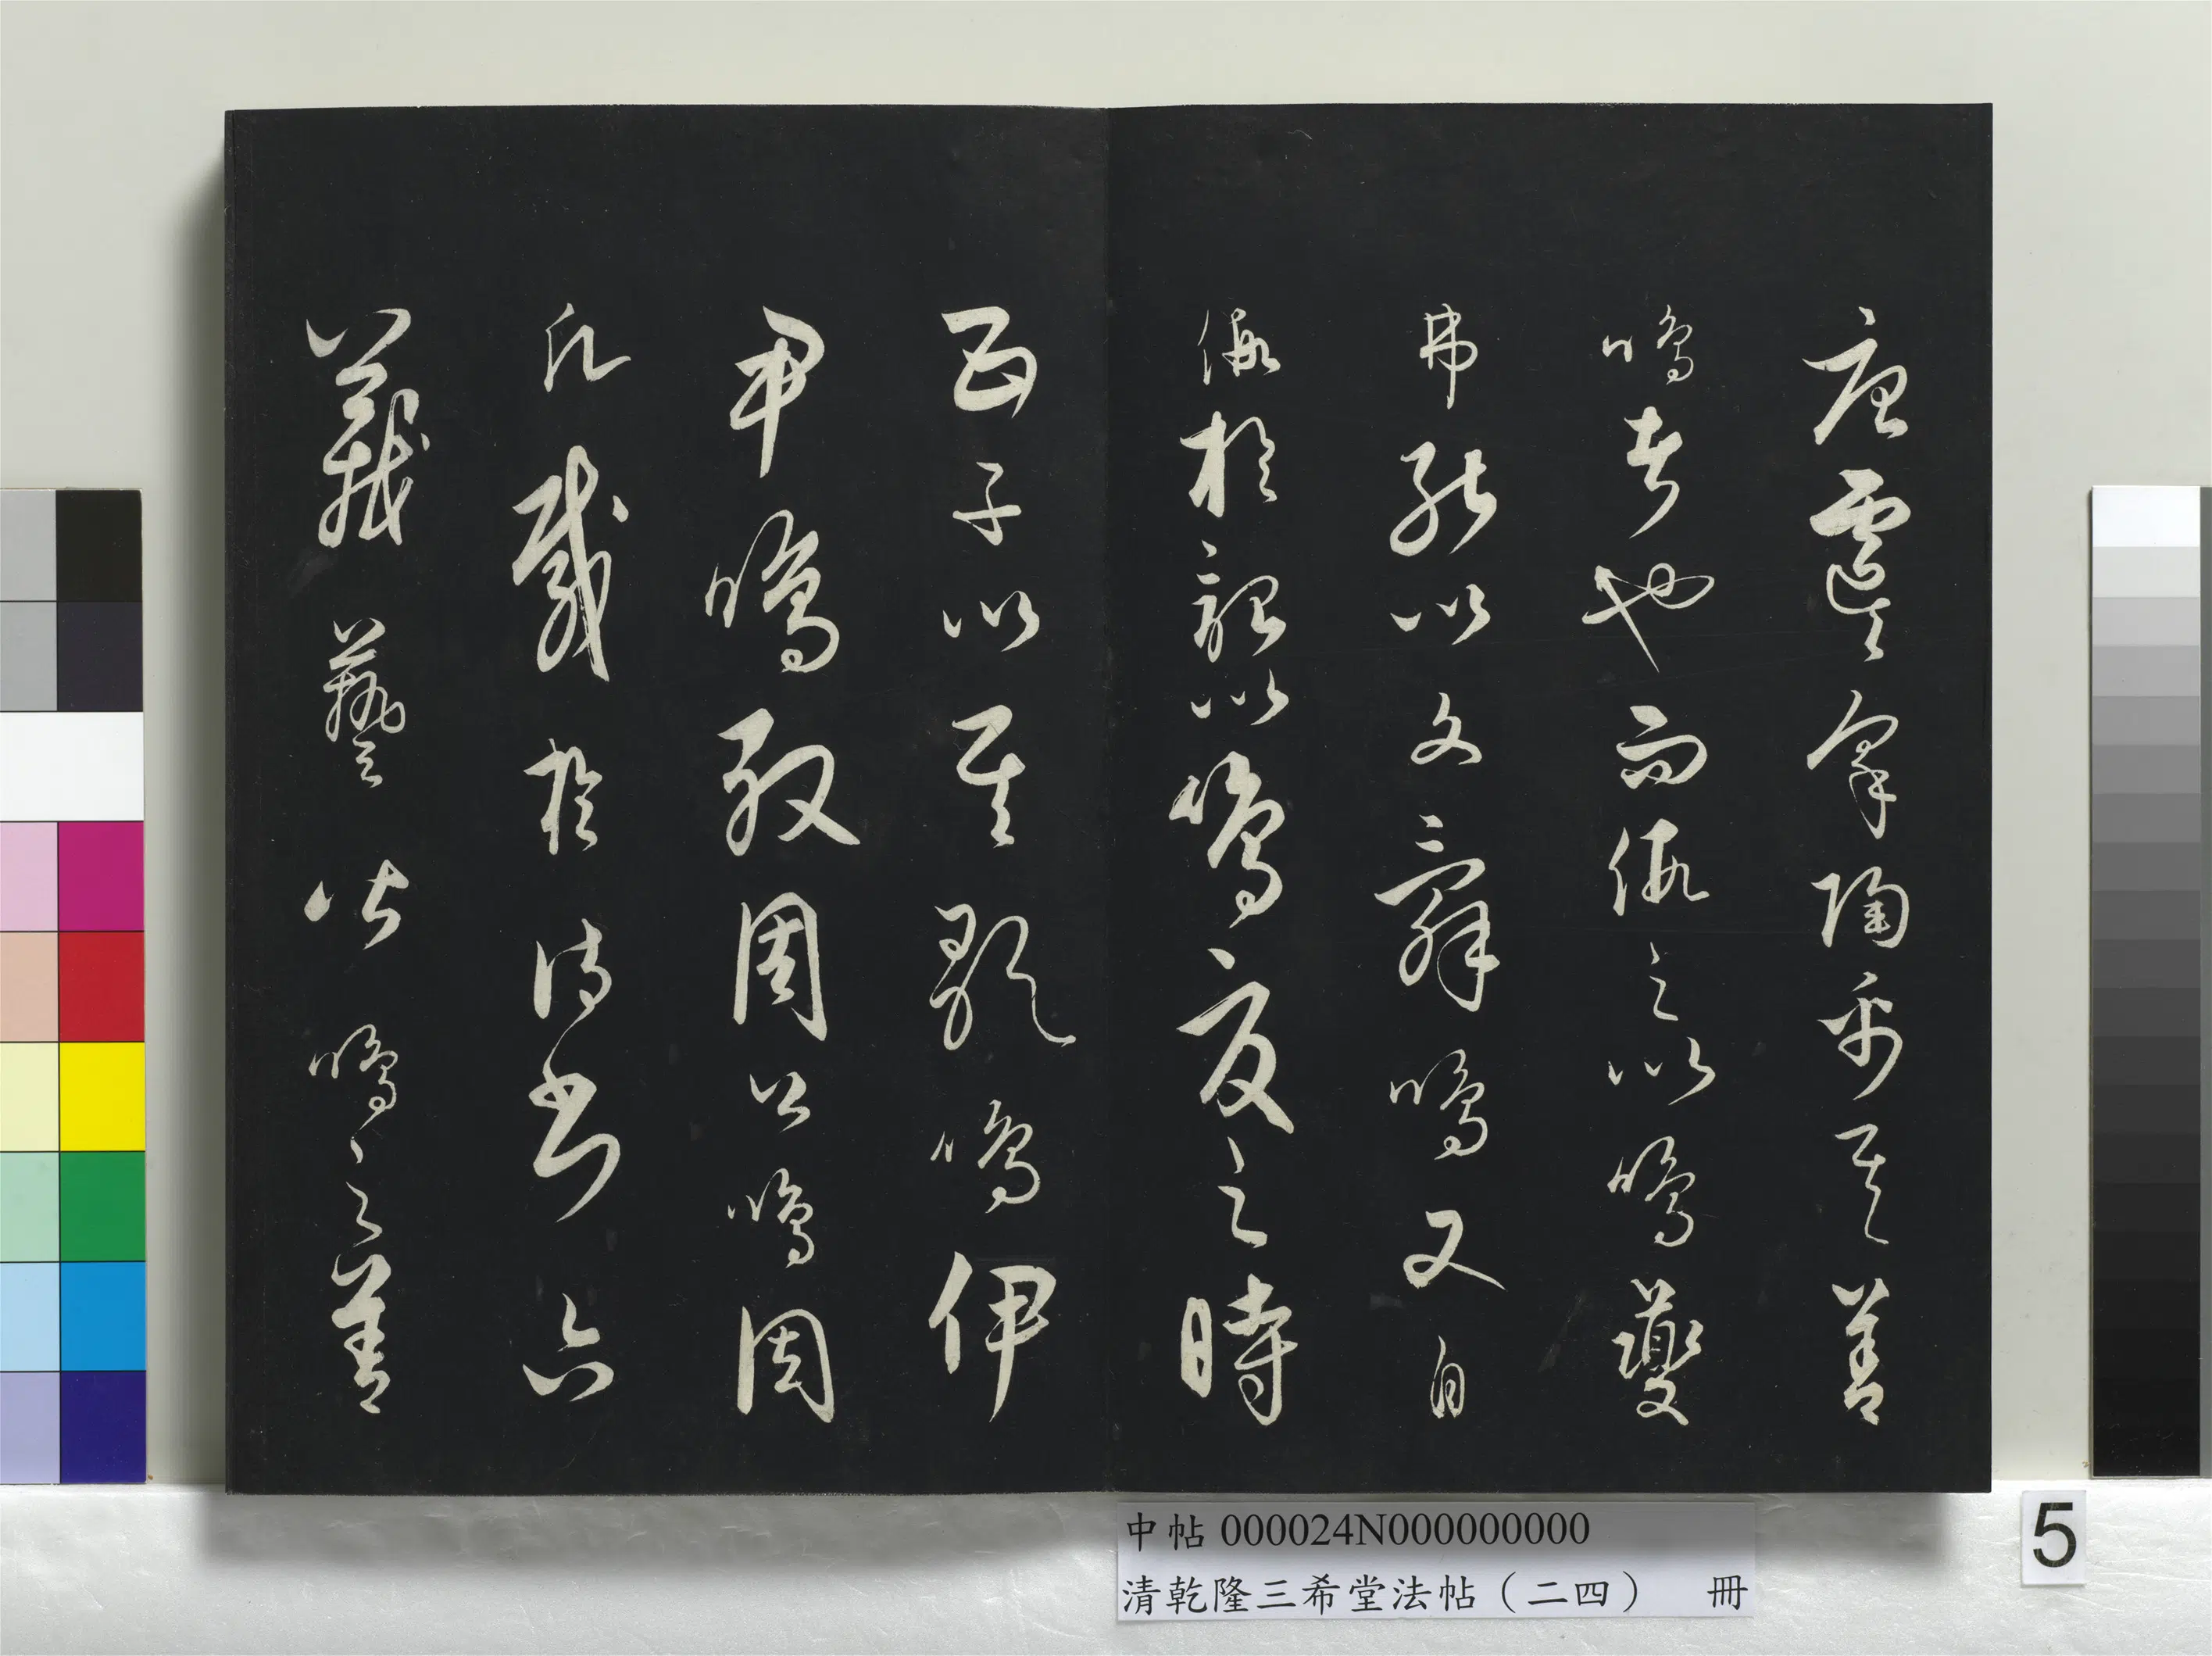 唐虞皋陶禹其善
鳴者也而假之以鳴夔
弗能以文辭鳴又自
假於韶以鳴夏之時
五子以其歌鳴伊
尹鳴殷周公鳴周
凡載於詩書六
藝皆鳴之善
中帖 000024N000000000
清乾隆三希堂法帖（二四） 冊
5